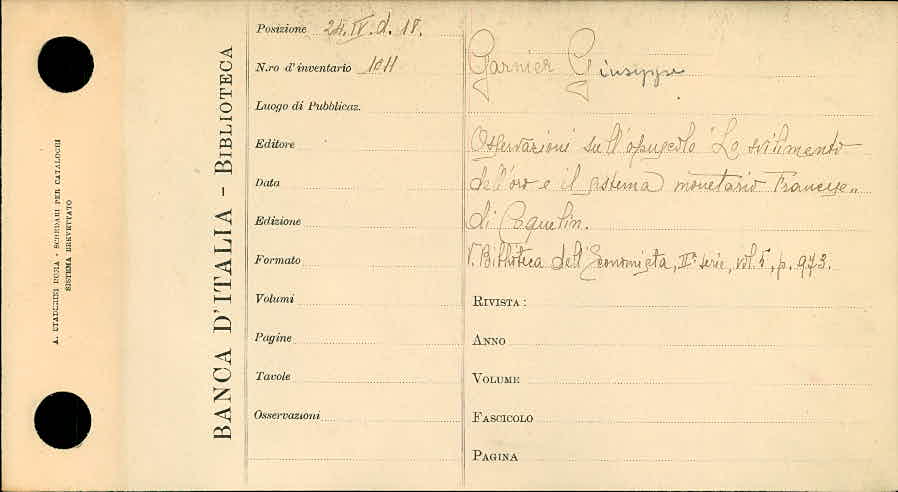 A. STADERINI ROMA - SCHEDARI PER CATALOGHI
SISTEMA BREVETTATO
BANCA D'ITALIA - BIBLIOTECA
Posizione 24. IV. d. 18.
N.ro d'inventario 1011
Luogo di Pubblicaz.
Editore
Data
Edizione
Formato
Volumi
Pagine
Tavole
Osservazioni
Garnier Giuseppe
Osservazioni sull'opuscolo "Lo svilimento
dell'oro e il sistema monetario Francese"
di Coquelin.
V. Biblioteca dell'Economista, IIª serie, vol. 5, p. 973.
RIVISTA :
ANNO
VOLUME
FASCICOLO
PAGINA